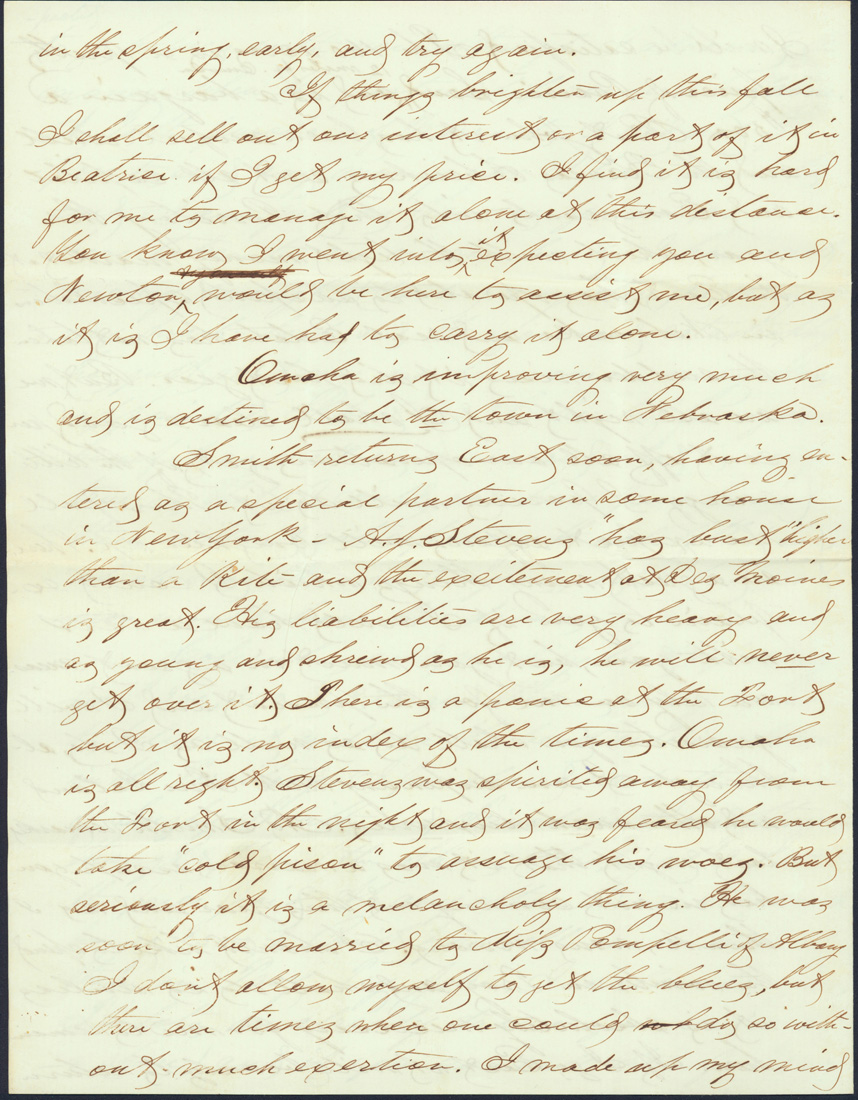 in the spring, early, and try again.
If things brighten up this fall
I shall sell out our interest or a part of it in
Beatrice if I get my price. I find it is hard
for me to manage it alone at this distance.
You know I went into it expecting you and
Newton, would be here to assist me, but as
it is I have had to carry it alone.
Omaha is improving very much
and is destined to be the town in Nebraska.
Smith returns East soon, having en-
tered as a special partner in some house
in New York - A.J. Stevens "has bust" higher
than a Kite and the excitement at Des Moines
is great. His liabilities are very heavy and
as young and shrewd as he is, he will never
get over it. There is a panic at the Fort
but it is no index of the times. Omaha
is all right. Stevens was spirited away from
the Fort in the night and it was feard he would
take "cold pison" to assuage his woes. But
seriously it is a melancholy thing. He was
soon to be married to Miss Pompelli of Albany
I don't allow myself to get the blues, but
there are times when one could do so with-
out much exertion. I made up my mind